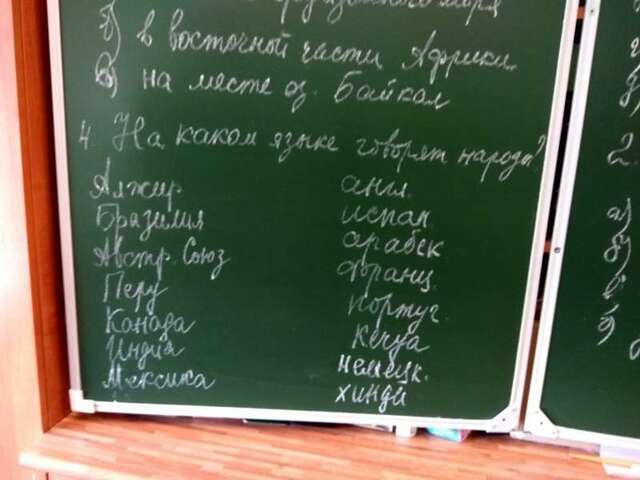 моря
б) в восточной части Африки
в) на месте оз. Байкал
4. На каком языке говорят народы?
Алжир англ.
Бразилия испан.
Австр. Союз арабск
Перу Франц.
Канада португ.
Индия Кечуа
Мексика немецк.
хинди
2
а)
б)
в